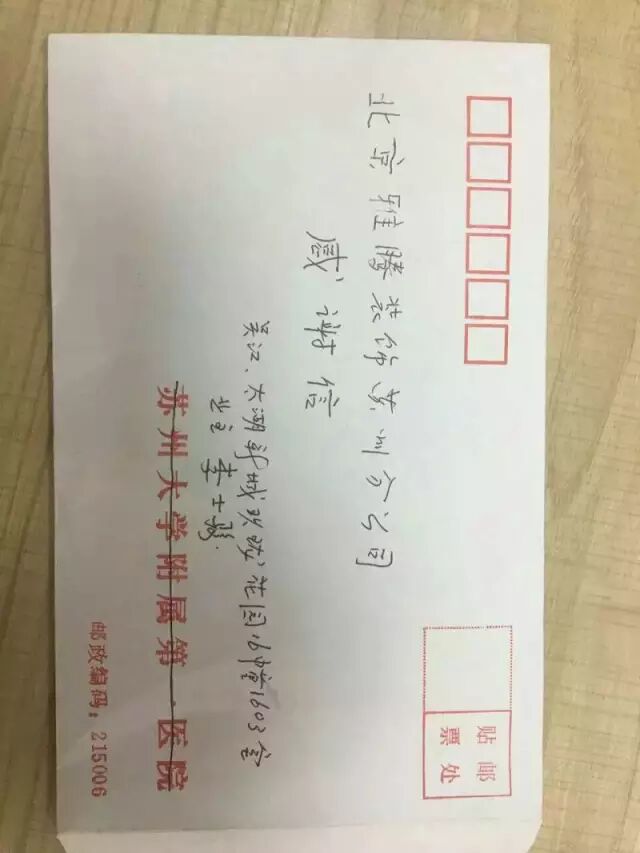 北京雅腾装饰苏州分公司
感谢信
吴江.太湖新城玫瑰花园16幢1603室
业主 李士
苏州大学附属第一医院
邮政编码：215006
贴邮
票处